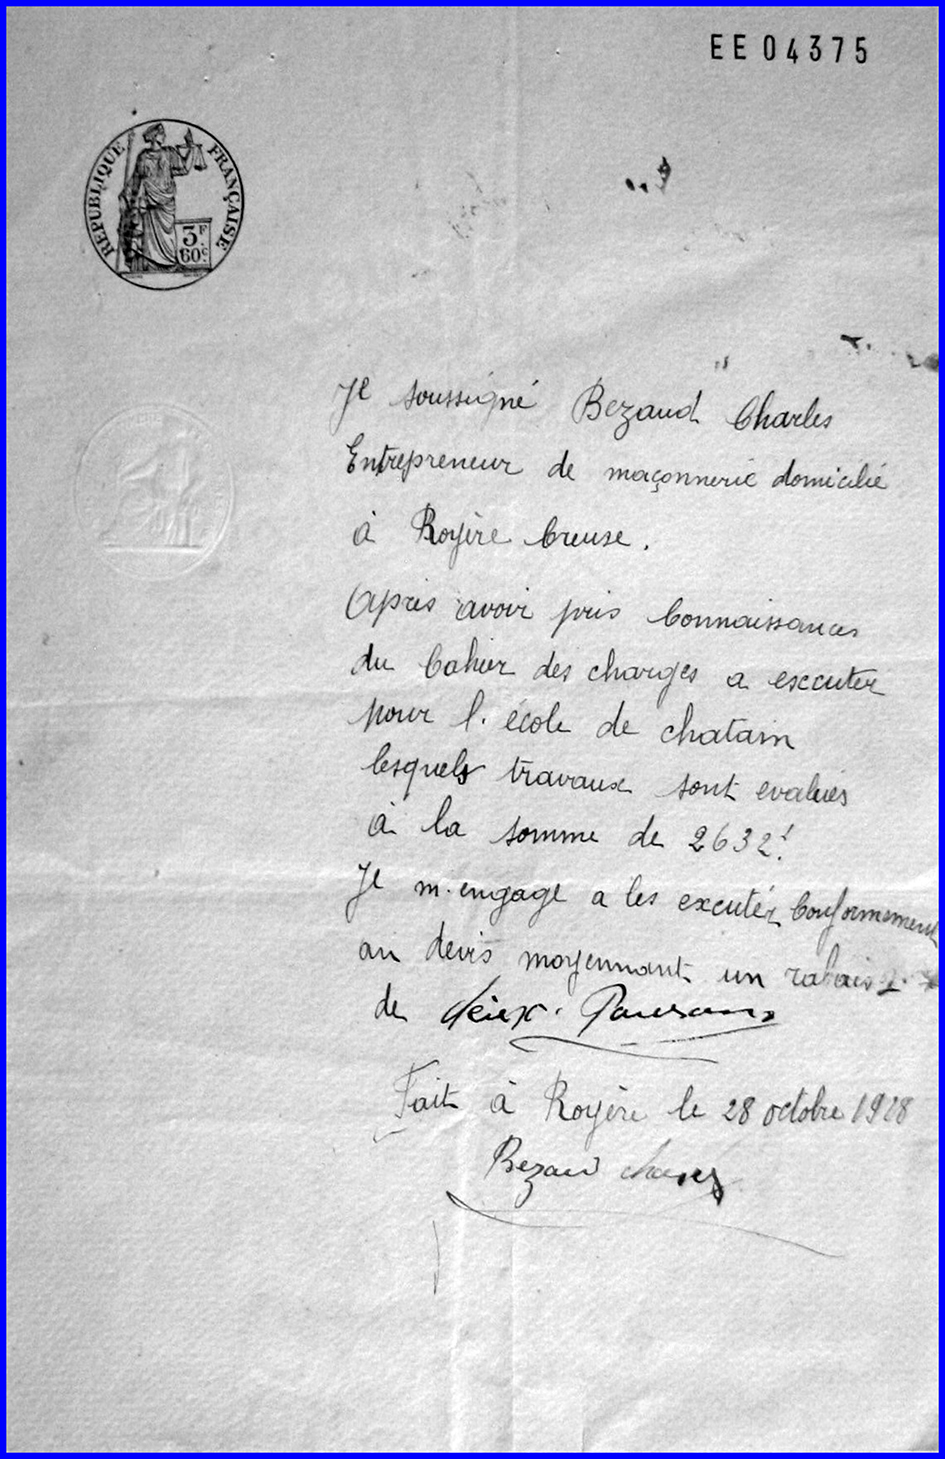 EE04375
RÉPUBLIQUE FRANÇAISE
3F
60c
Je soussigné Bezaud Charles
Entrepreneur de maçonnerie domicilié
à Royère Creuse.
Après avoir pris Connaissances
du Cahier des charges a excuter
pour l'école de chatain
lesquels travaux sont evalués
à la somme de 2632f
Je m'engage a les excutér Conformement
au devis moyennant un rabais
de deux
Fait à Royère le 28 octobre 1928
Bezaud Charles